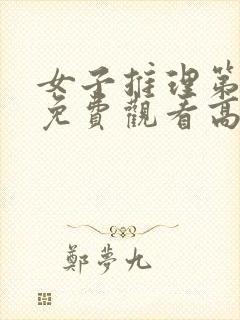 女子推理第
免費觀看高
鄭夢九